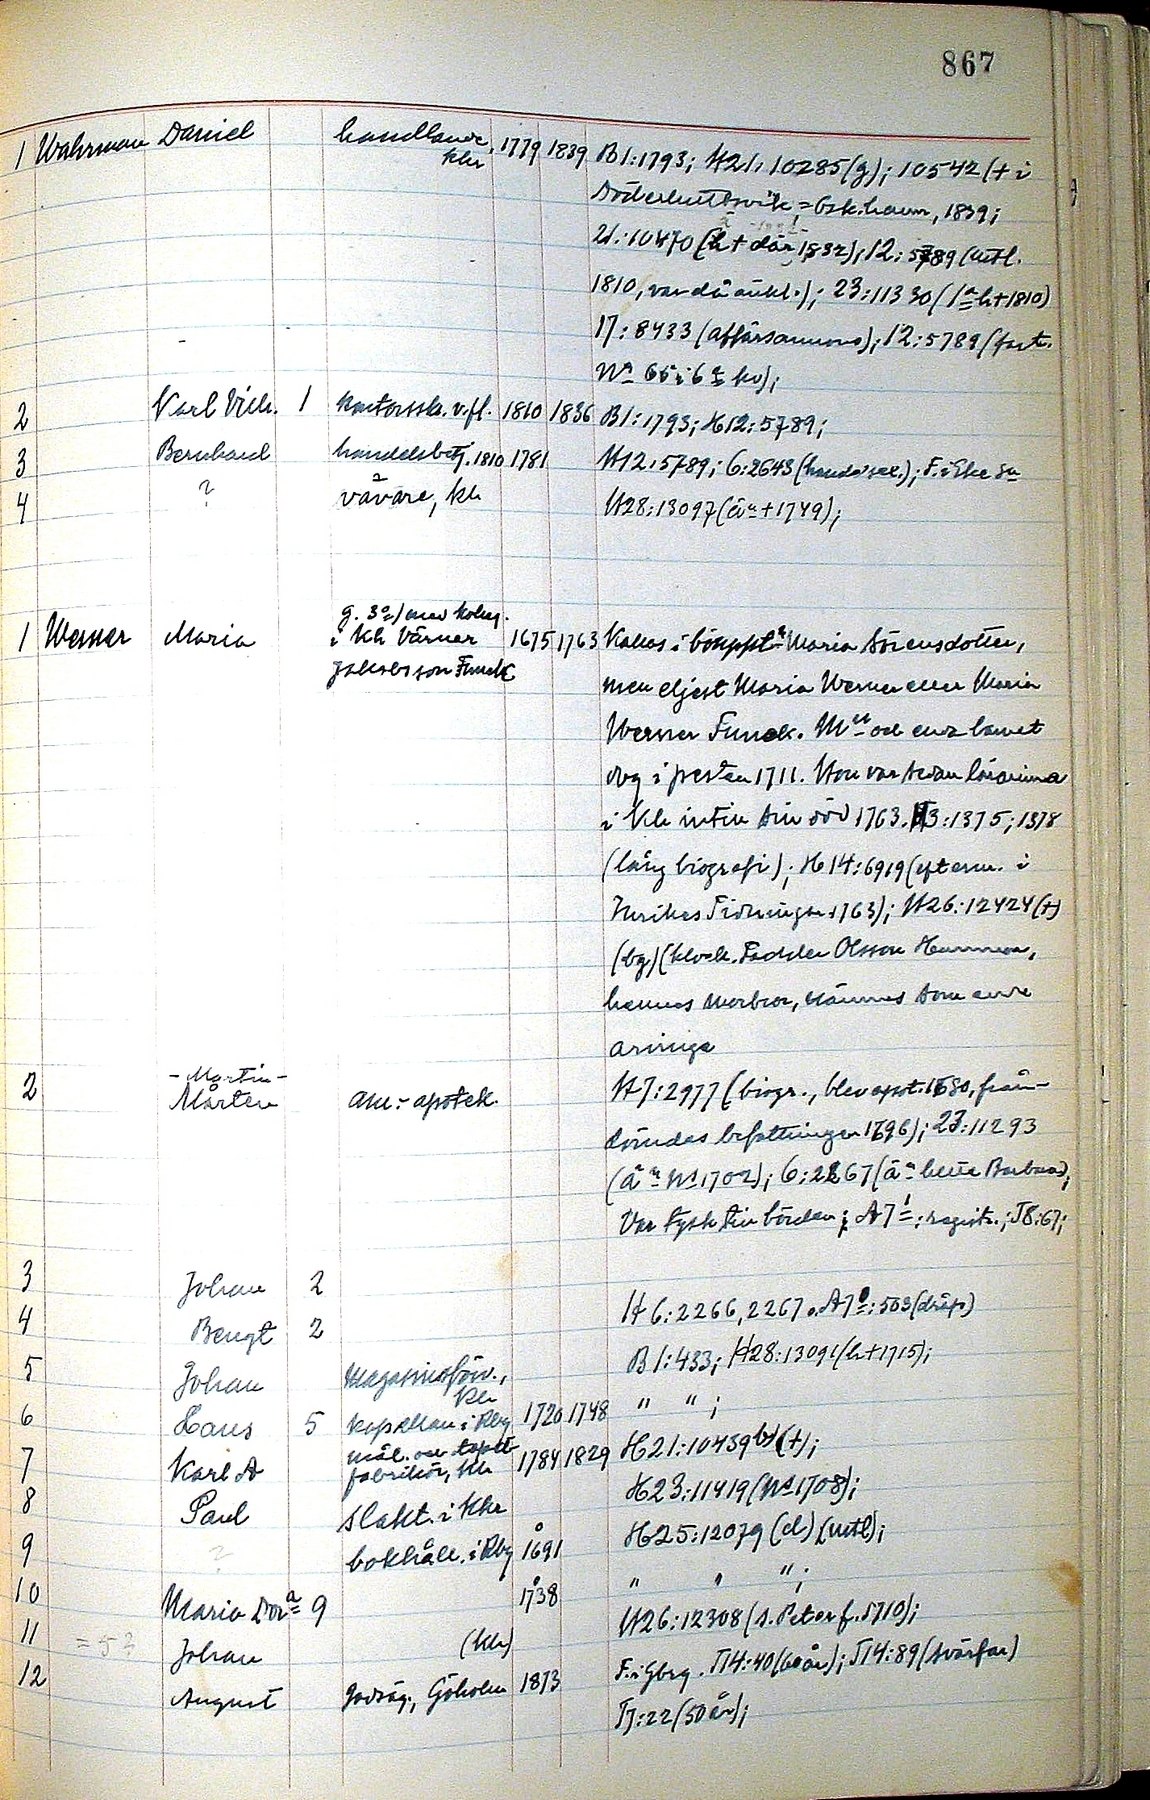 867
1 Wahrman Daniel handlande, khr 1779 1839 B1:1793; H21:10285(g); 10542(+ i
= Osk.hamn, 1839;
21:10470 (h+ där 1832); 12:5789 (utl.
1810, var då änkl.); 23:11330 (1ª h+1810)
17:8433 (affärsannons); 12:5789 (fast.
Nº 65 i 6 kv);
2 Karl Vilh. 1 kontorssk. v.fl. 1810 1836 B1:1793; H12:5789;
3 Bernhard handelsbetj. 1810 1781 H12:5789; 6:2643 ; F. i Eke sn
4 ? vävare, kh H28:13097 (än+1749);
g. 3º) med
1 Werner Maria i Kh Värner 1675 1763 Kallas i bouppt. Maria Sörensdotter,
Jakobsson Funck
men eljest Maria Werner eller Maria
Werner Funck. M och enda barnet
dog i pesten 1711. Hon var sedan lärarinna
i Kh intill sin död 1763. H3:1375; 1378
(lång biografi); H14:6919 (efterm. i
Inrikes Tidningar 1763); H26:12424 (+)
(bg) (klock. Fadder Olsson Hammar,
hennes morbror, nämnes som
arvinge
2 - Martin - Mårten am.- apotek. H7:2977 (biogr., blev apot. 1680, från-
träddes befattningen 1696); 23:11293
(än Nº 1702); 6:2267 (än hette Barbara);
Var tysk till börden; A7; registr.; T8:67;
3 Johan 2
4 Bengt 2 H6:2266, 2267. A7:503 (dräp)
5 Johan magasinsförv., Kh B1:433; H28:13091 (h+1715);
6 Hans 5 kapellan i Rby 1720 1748 " " ;
7 Karl A mål. och tapet- fabrikör, kh 1784 1829 H21:10439 b) (+);
8 Paul slakt. i Khr H23:11419 (Nº 1708);
9 ? bokhåll. i Rby 1691 H25:12079 (d) (utl);
10 Maria Dorª 9 1738 " " " ;
11 = 5? Johan (kh) H26:12308 (s. Peter f. 1710);
12 August godsäg., Göholm 1873 F. i Gbrg. T14:40 (60 år); T14:89 (svärfar)
T7:22 (50 år);